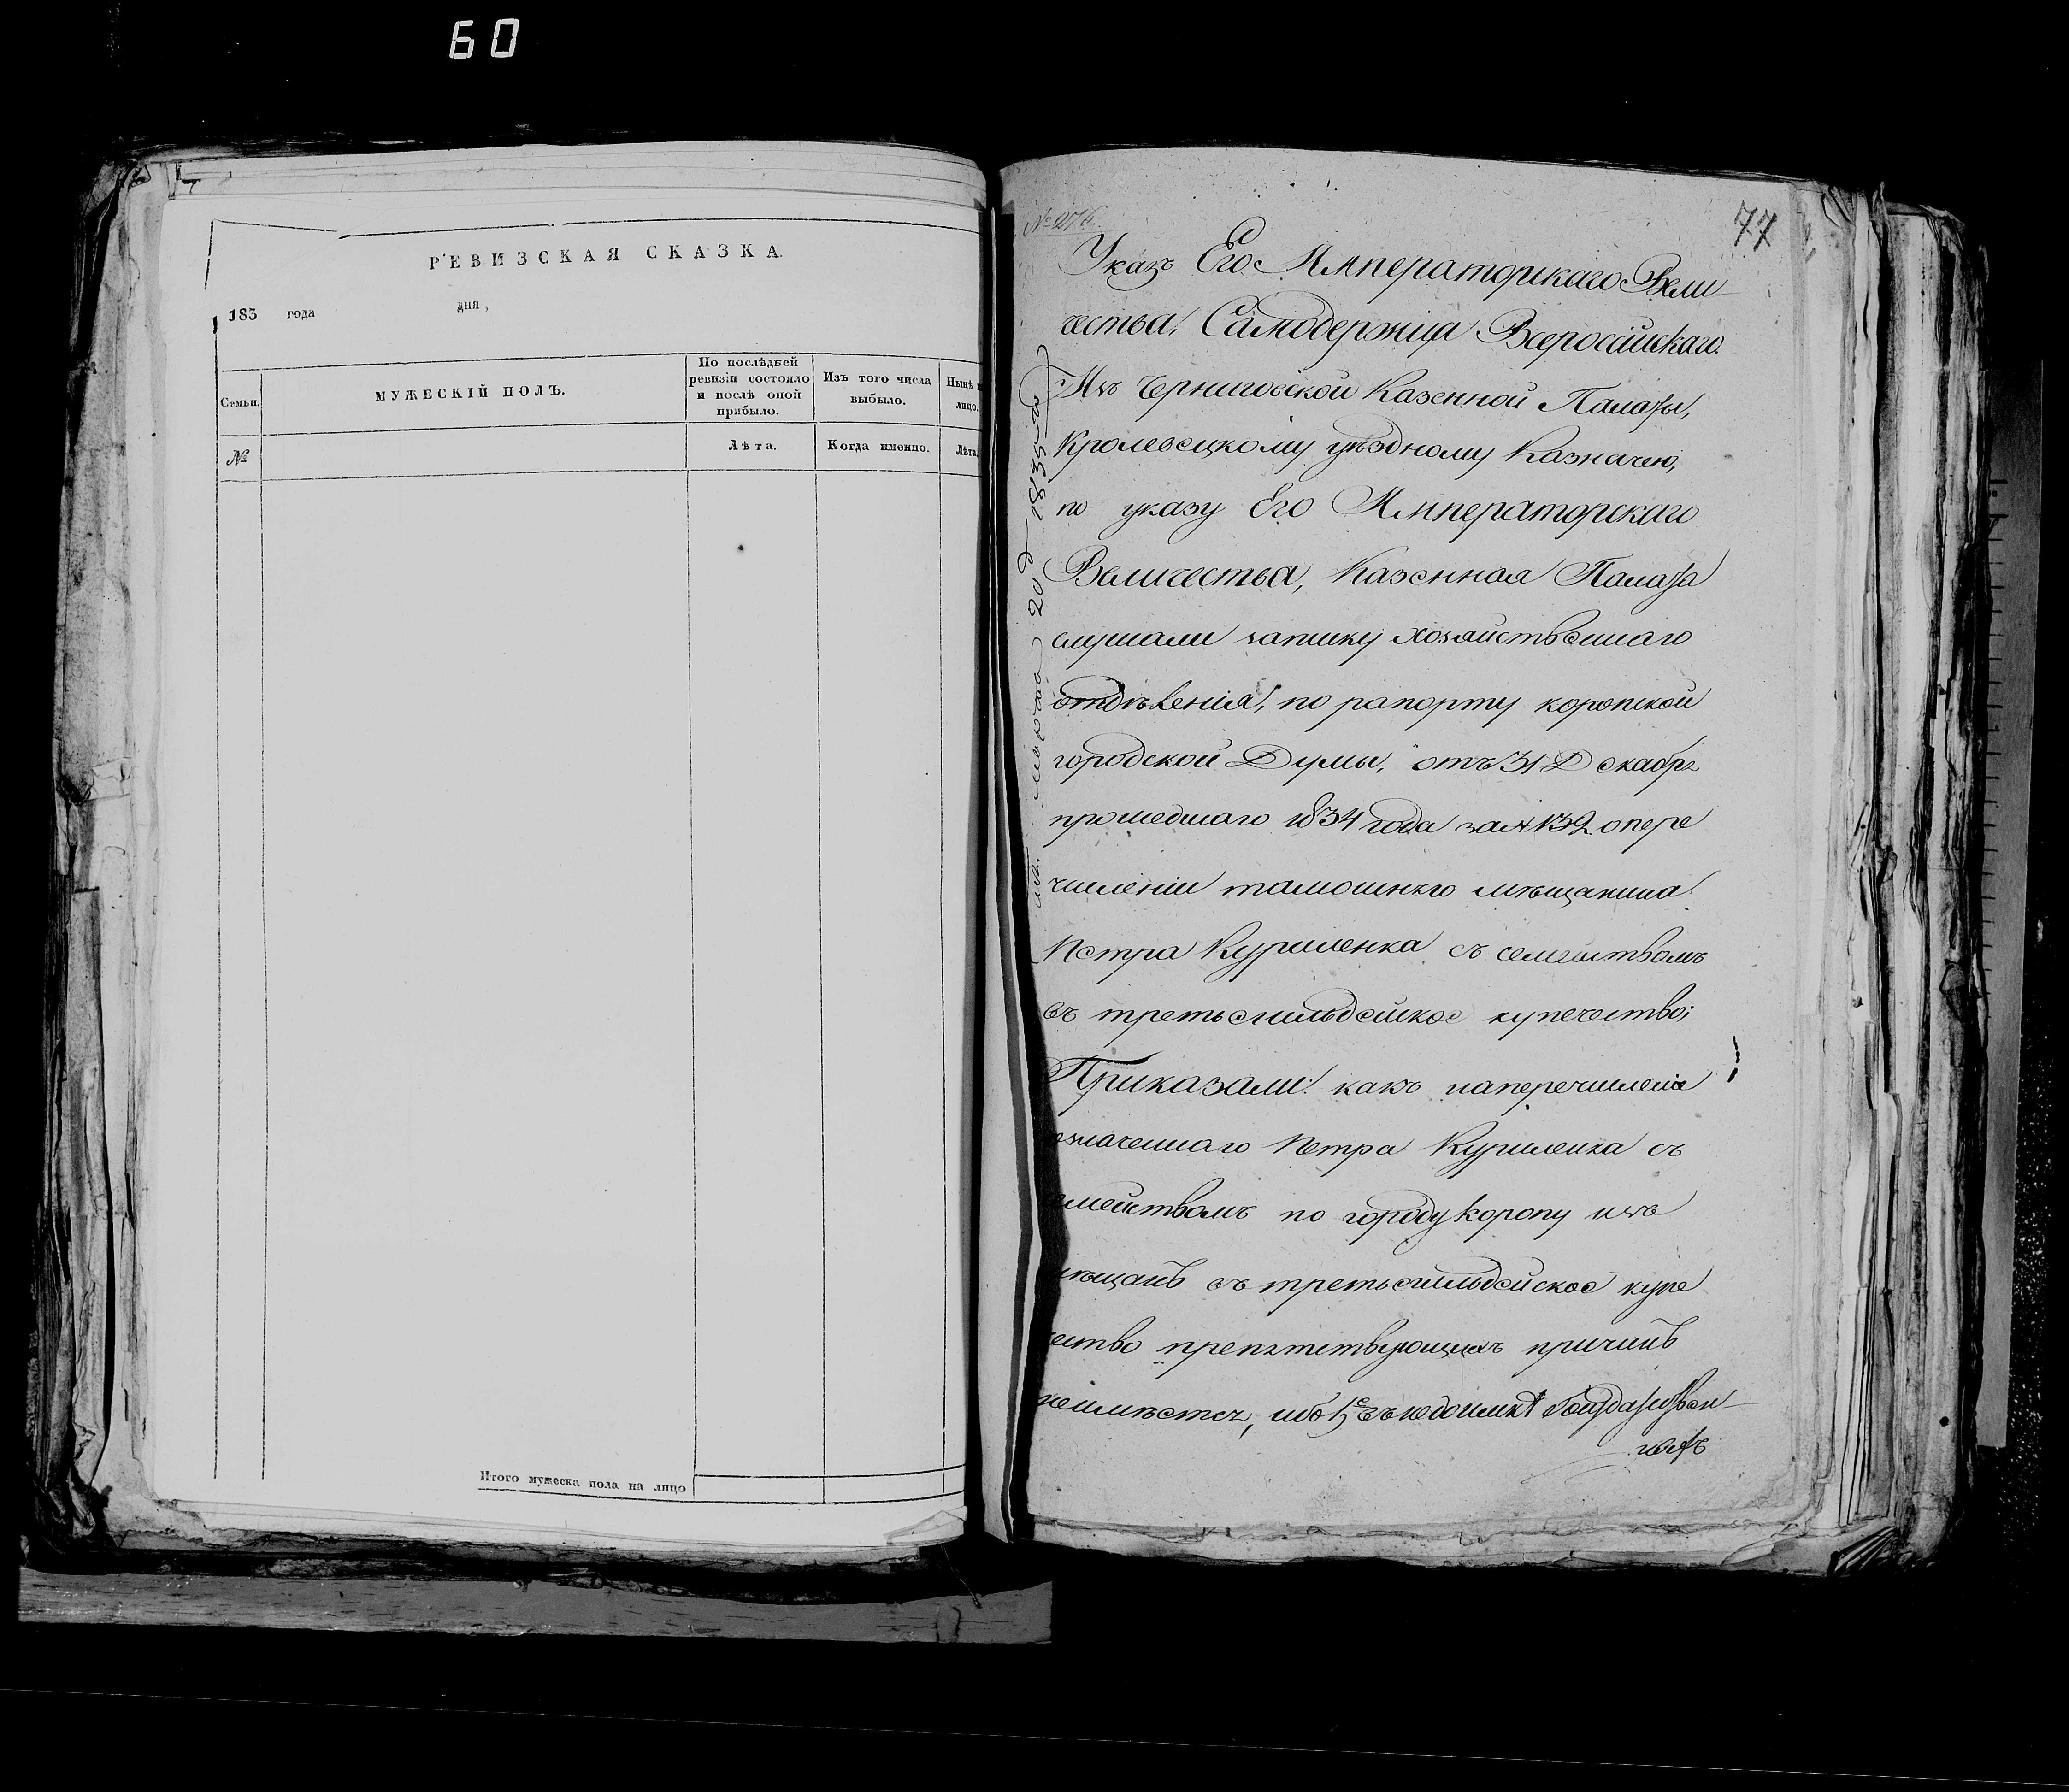 60
РЕВИЗСКАЯ СКАЗКА
183 года дня,
Семьи.
МУЖЕСКІЙ ПОЛЪ.
По послѣдней
ревизіи состояло
и послѣ оной
прибыло.
Изъ того числа
выбыло.
Нынѣ
лицо.
№
Лѣта.
Когда именно.
Лѣта.
Итого мужеска пола на лицо
77
Указъ Его Императорскаго Вели
чества, Самодержца Всеросійскаго.
Изъ Черниговской Казенной Палаты,
Кролевецкому уѣздному Казначею,
по указу Его Императорскаго
Величества, Казенная Палата
слушали записку хозяйственнаго
отдѣленія, по рапорту коропской
городской Думы, отъ 31 Декабря
прошедшаго 1834 года за № 132 о пере
численіи тамошняго мѣщанина
Петра Куриленка съ семействомъ
въ третьегильдейское купечество;
Приказали: какъ на перечисленіе
означеннаго Петра Куриленка съ
емействомъ по городу Коропу изъ
мѣщанъ въ третьегильдейское купе
чество препятствующихъ причинъ
неимѣется, ибо въ недоимкѣ
1835 го